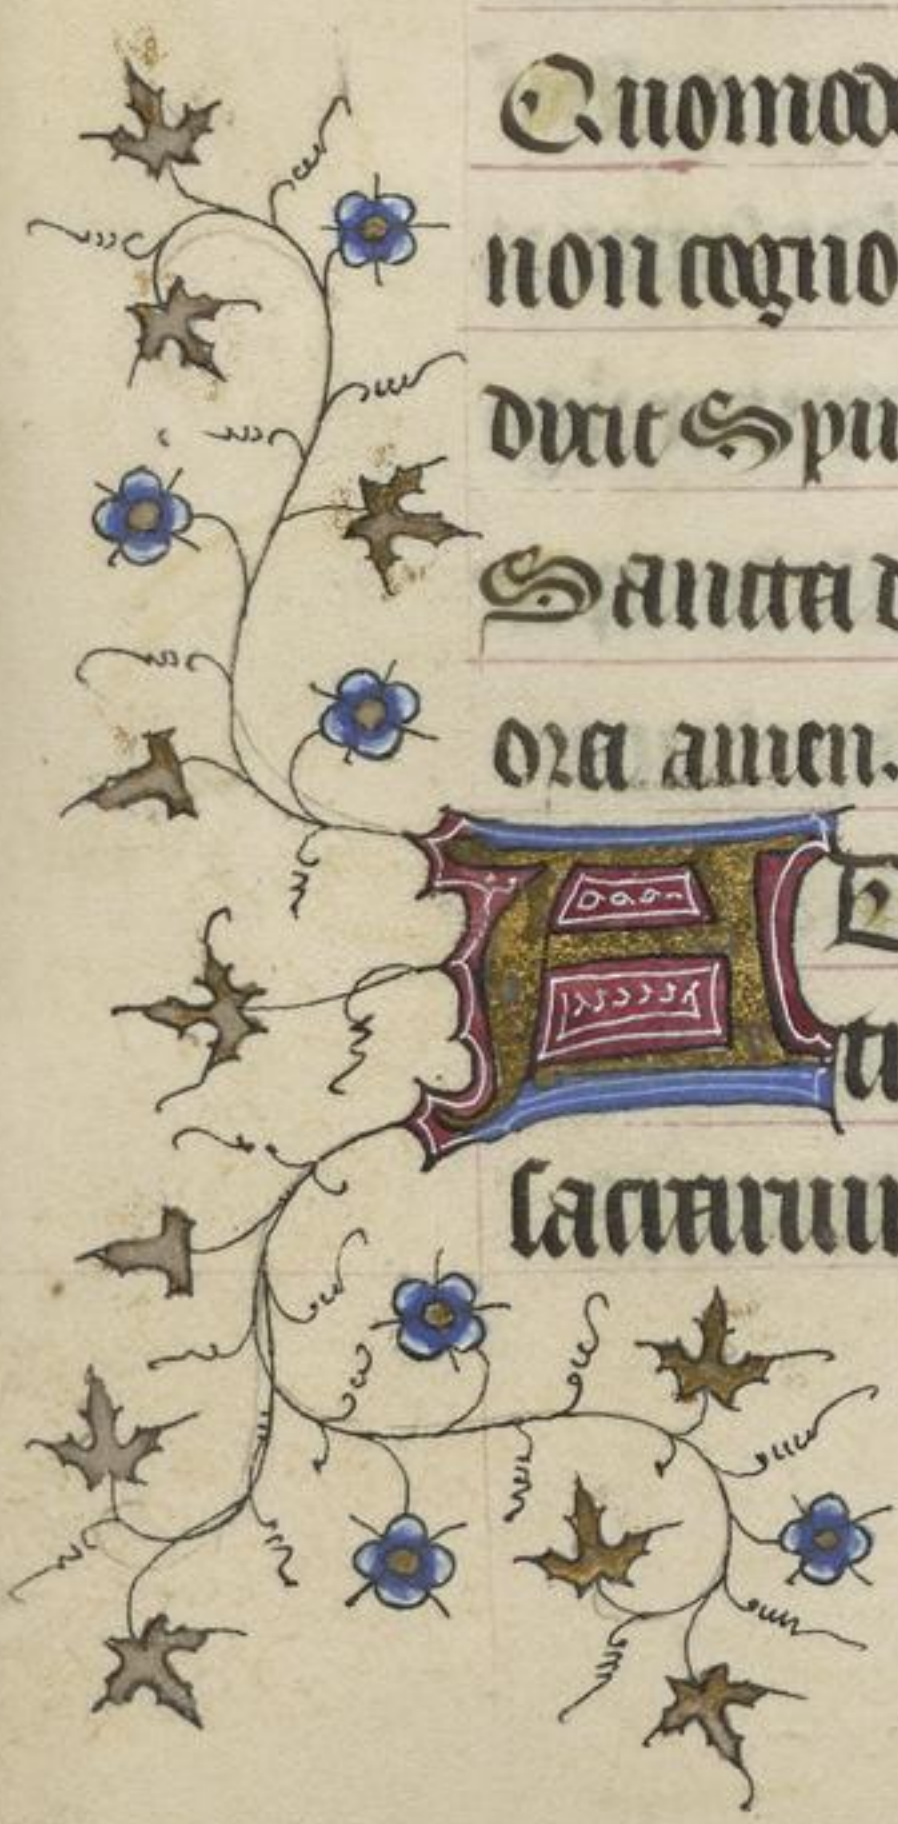 Quomod
non cogno
dixit Spu
Sancta d
ora amen.
AE
ti
sacitatum